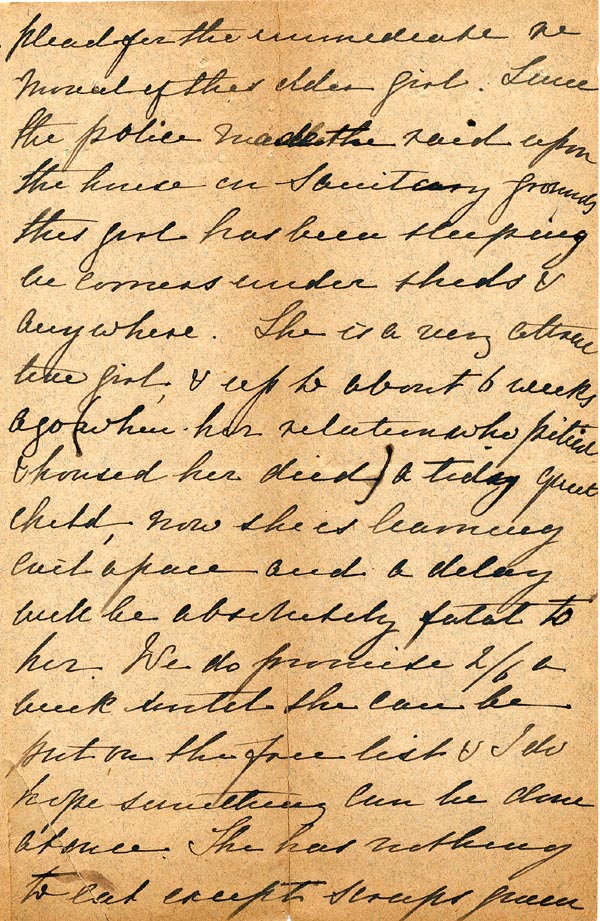 plead for the immediate re
moval of the elder girl. Since
the police made the raid upon
the house on Sanitary grounds
this girl has been sleeping
in corners under sheds &
anywhere. She is a very attrac
tive girl, & up to about 6 weeks
ago (when her relation who pitied
& housed her died) a tidy quiet
child, now she is learning
evil apace and a delay
will be absolutely fatal to
her. We do promise 2/6 a
week until she can be
put on the free list & I do
hope something can be done
at once. She has nothing
to eat except scraps given